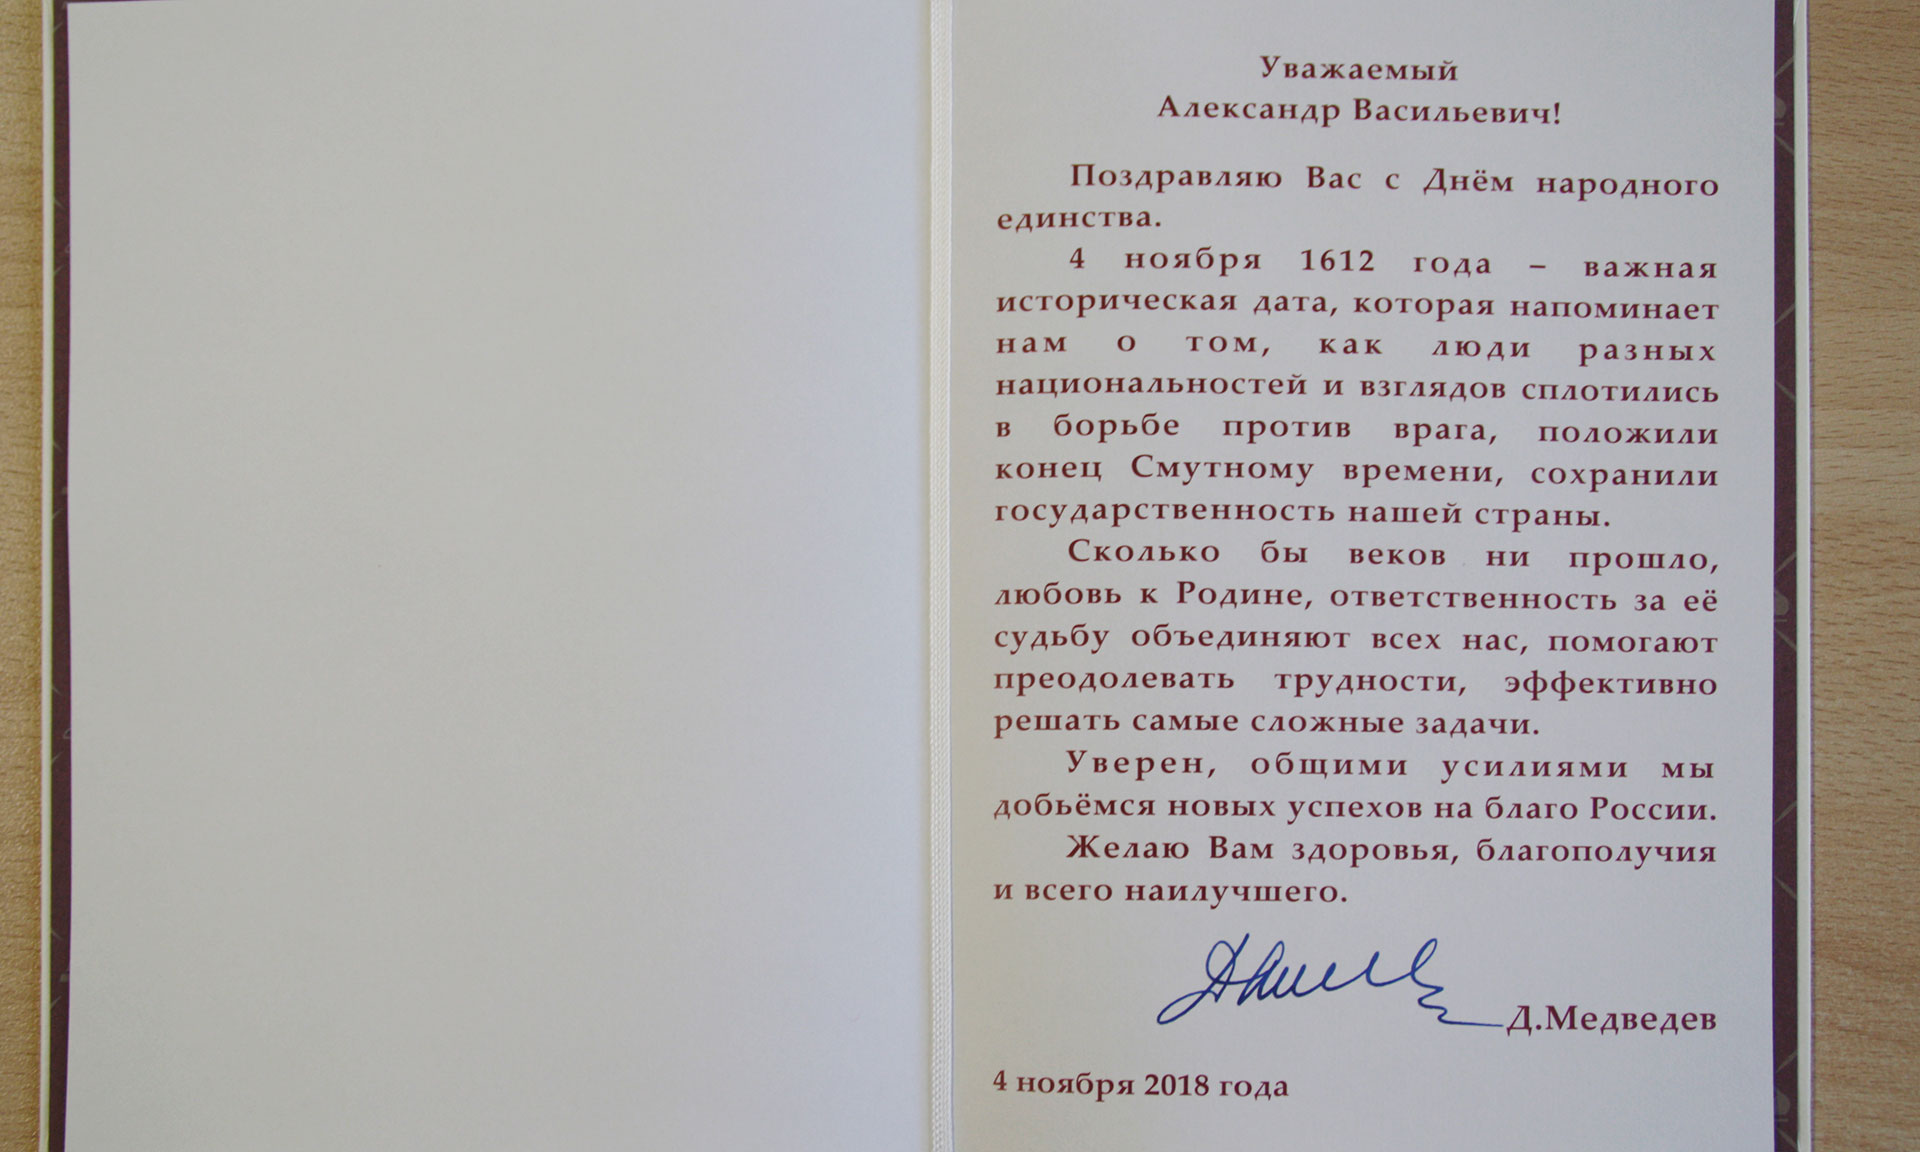 Уважаемый
Александр Васильевич!
Поздравляю Вас с Днём народного
единства.
4 ноября 1612 года – важная
историческая дата, которая напоминает
нам о том, как люди разных
национальностей и взглядов сплотились
в борьбе против врага, положили
конец Смутному времени, сохранили
государственность нашей страны.
Сколько бы веков ни прошло,
любовь к Родине, ответственность за её
судьбу объединяют всех нас, помогают
преодолевать трудности, эффективно
решать самые сложные задачи.
Уверен, общими усилиями мы
добьёмся новых успехов на благо России.
Желаю Вам здоровья, благополучия
и всего наилучшего.
Д.Медведев
4 ноября 2018 года